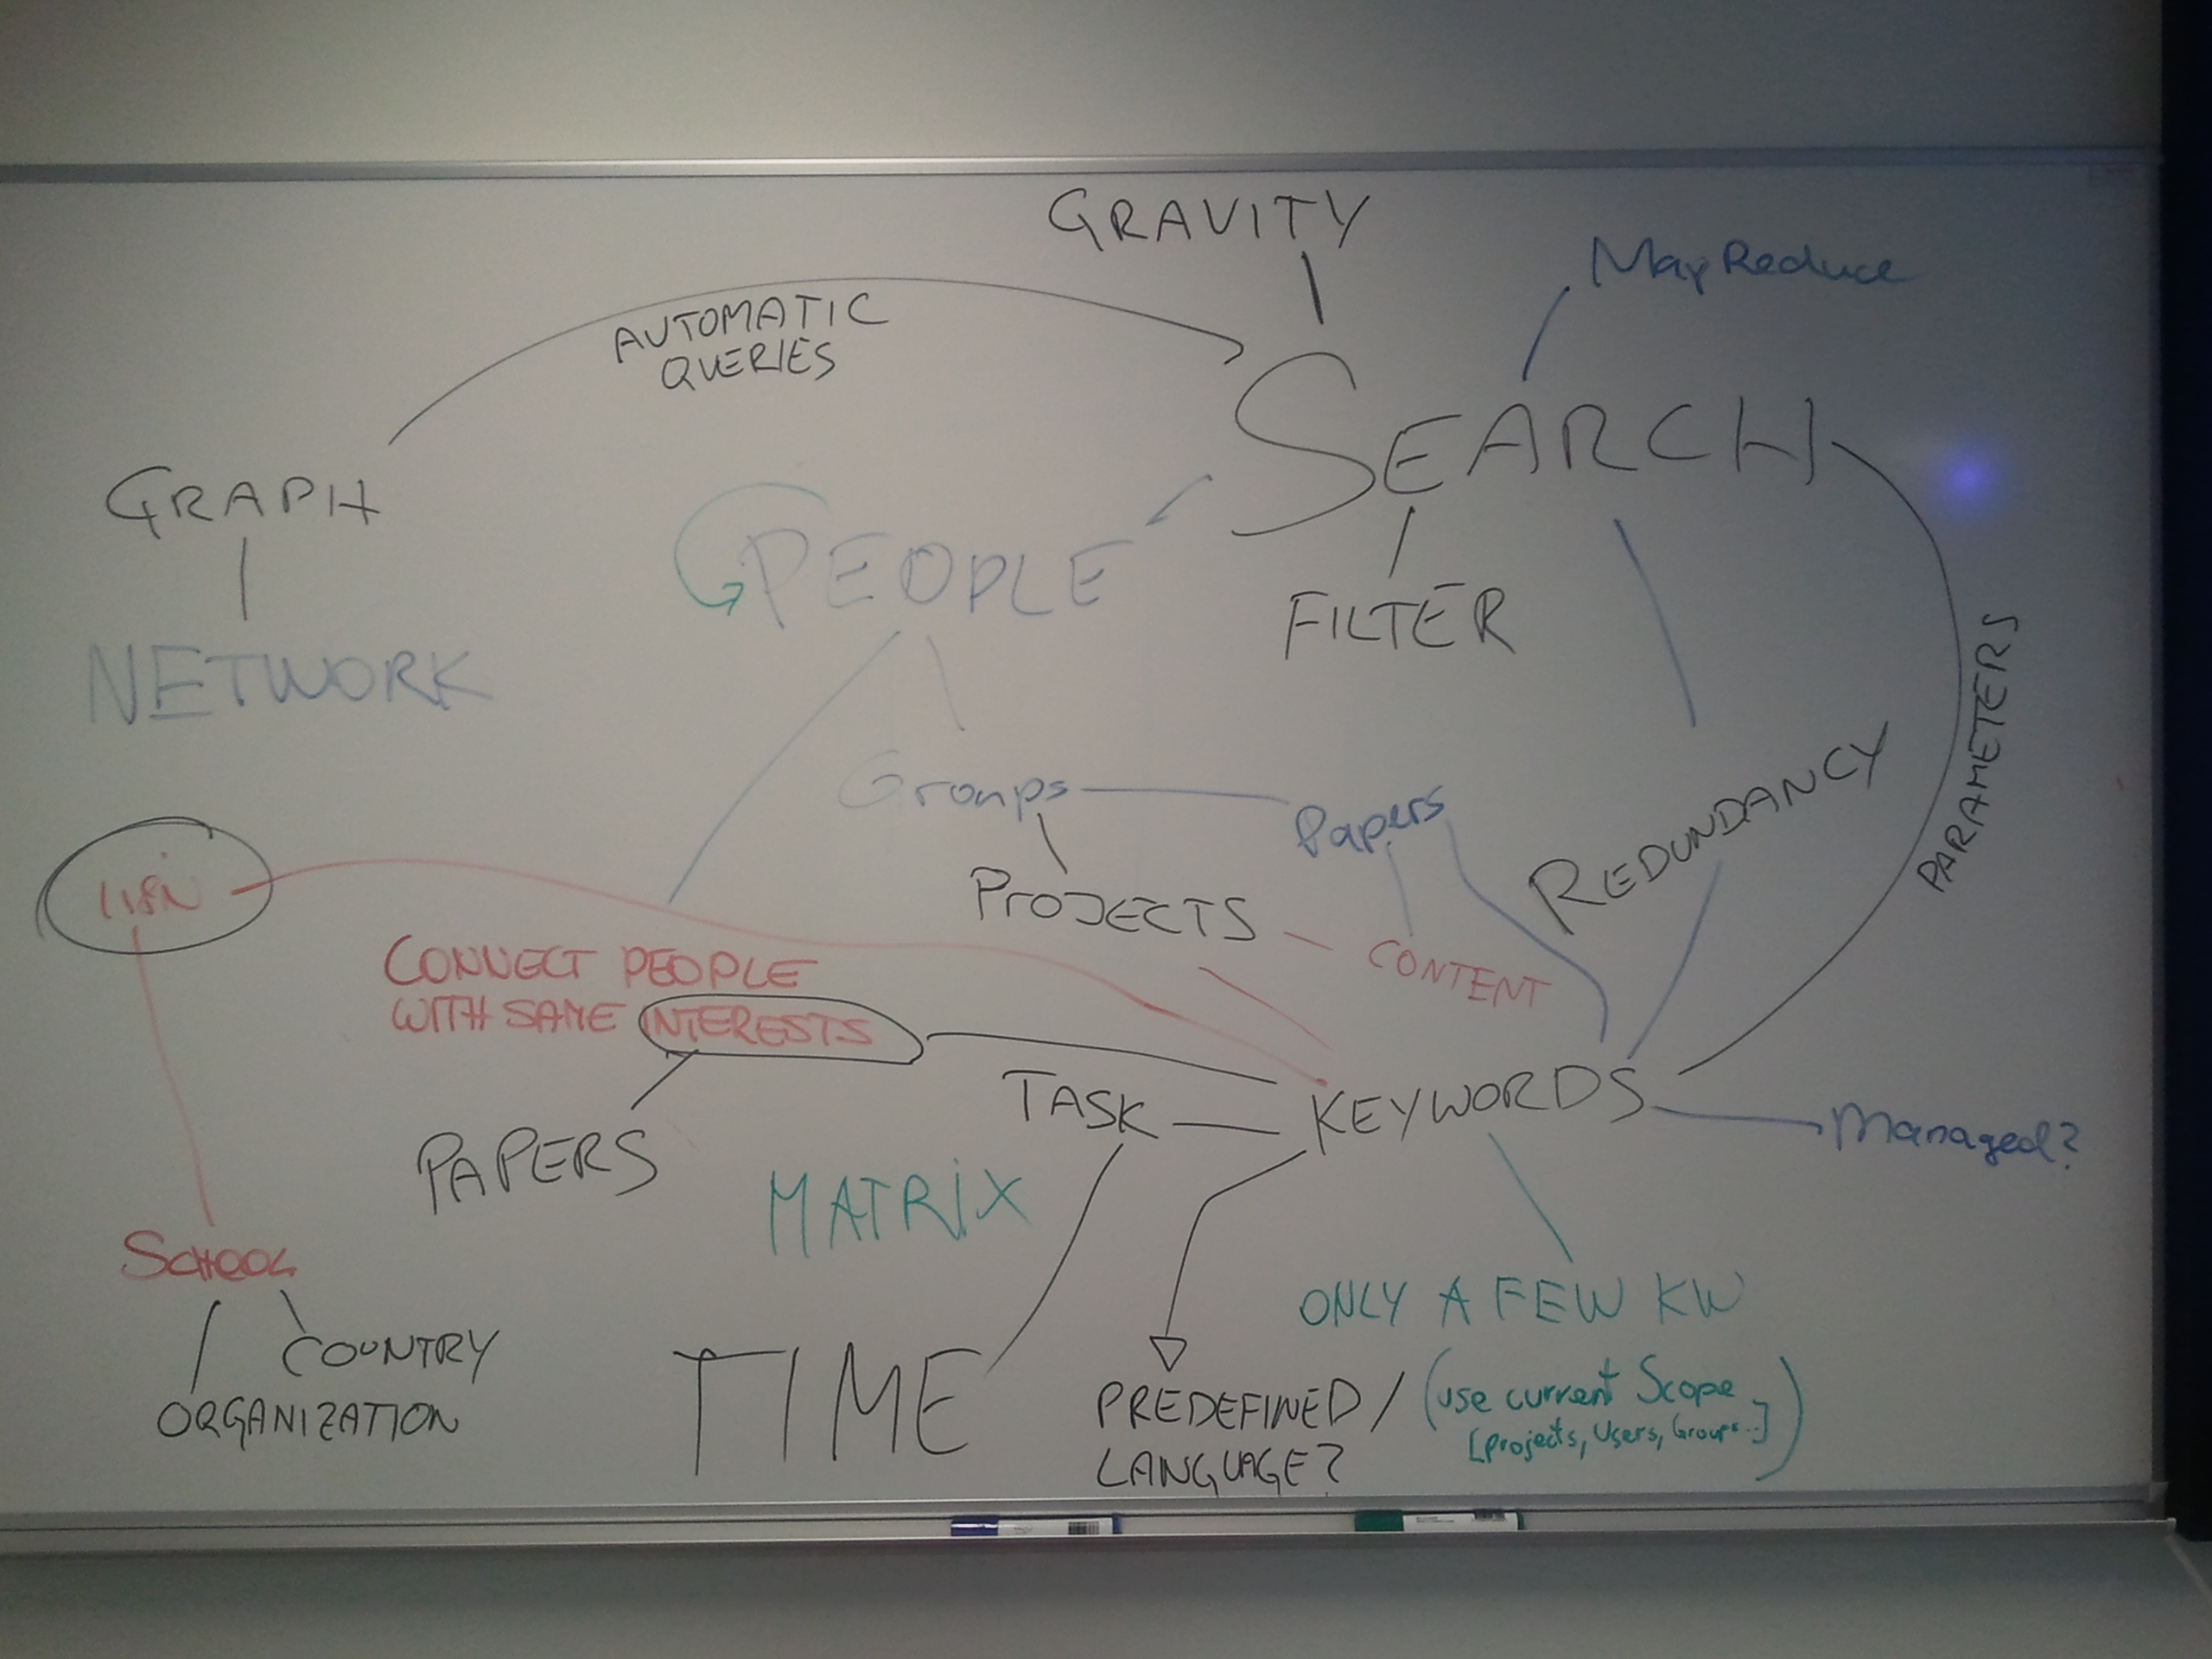 GRAVITY
MapReduce
AUTOMATIC
QUERIES
SEARCH
GRAPH
PEOPLE
FILTER
NETWORK
PARAMETERS
Groups
Papers
REDUNDANCY
I18N
PROJECTS
CONTENT
CONNECT PEOPLE
WITH SAME INTERESTS
TASK
KEYWORDS
Managed?
PAPERS
MATRIX
SCHOOL
ONLY A FEW KW
COUNTRY
ORGANIZATION
TIME
PREDEFINED /
LANGUAGE?
(use current Scope
[projects, Users, Groups..])